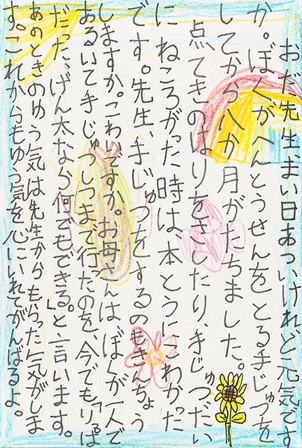 おだ先生まい日あついけれど元気です
か。ぼくがへんとうせんをとる手じゅつを
してから八か月がたちました。
点てきのはりをさしたり、手じゅつだい
にねころがった時は、本とうにこわかった
です。先生、手じゅつをするのもきんちょう
しますか。こわいですか。お母さんは、「ぼくが一人で
あるいて手じゅつしつまで行ったのを、今でもりっぱ
だった。げん太なら何でもできる。」と言います。
あのときのゆう気は先生からもらった気がしま
す。これからもゆう気を心にいれてがんばるよ。